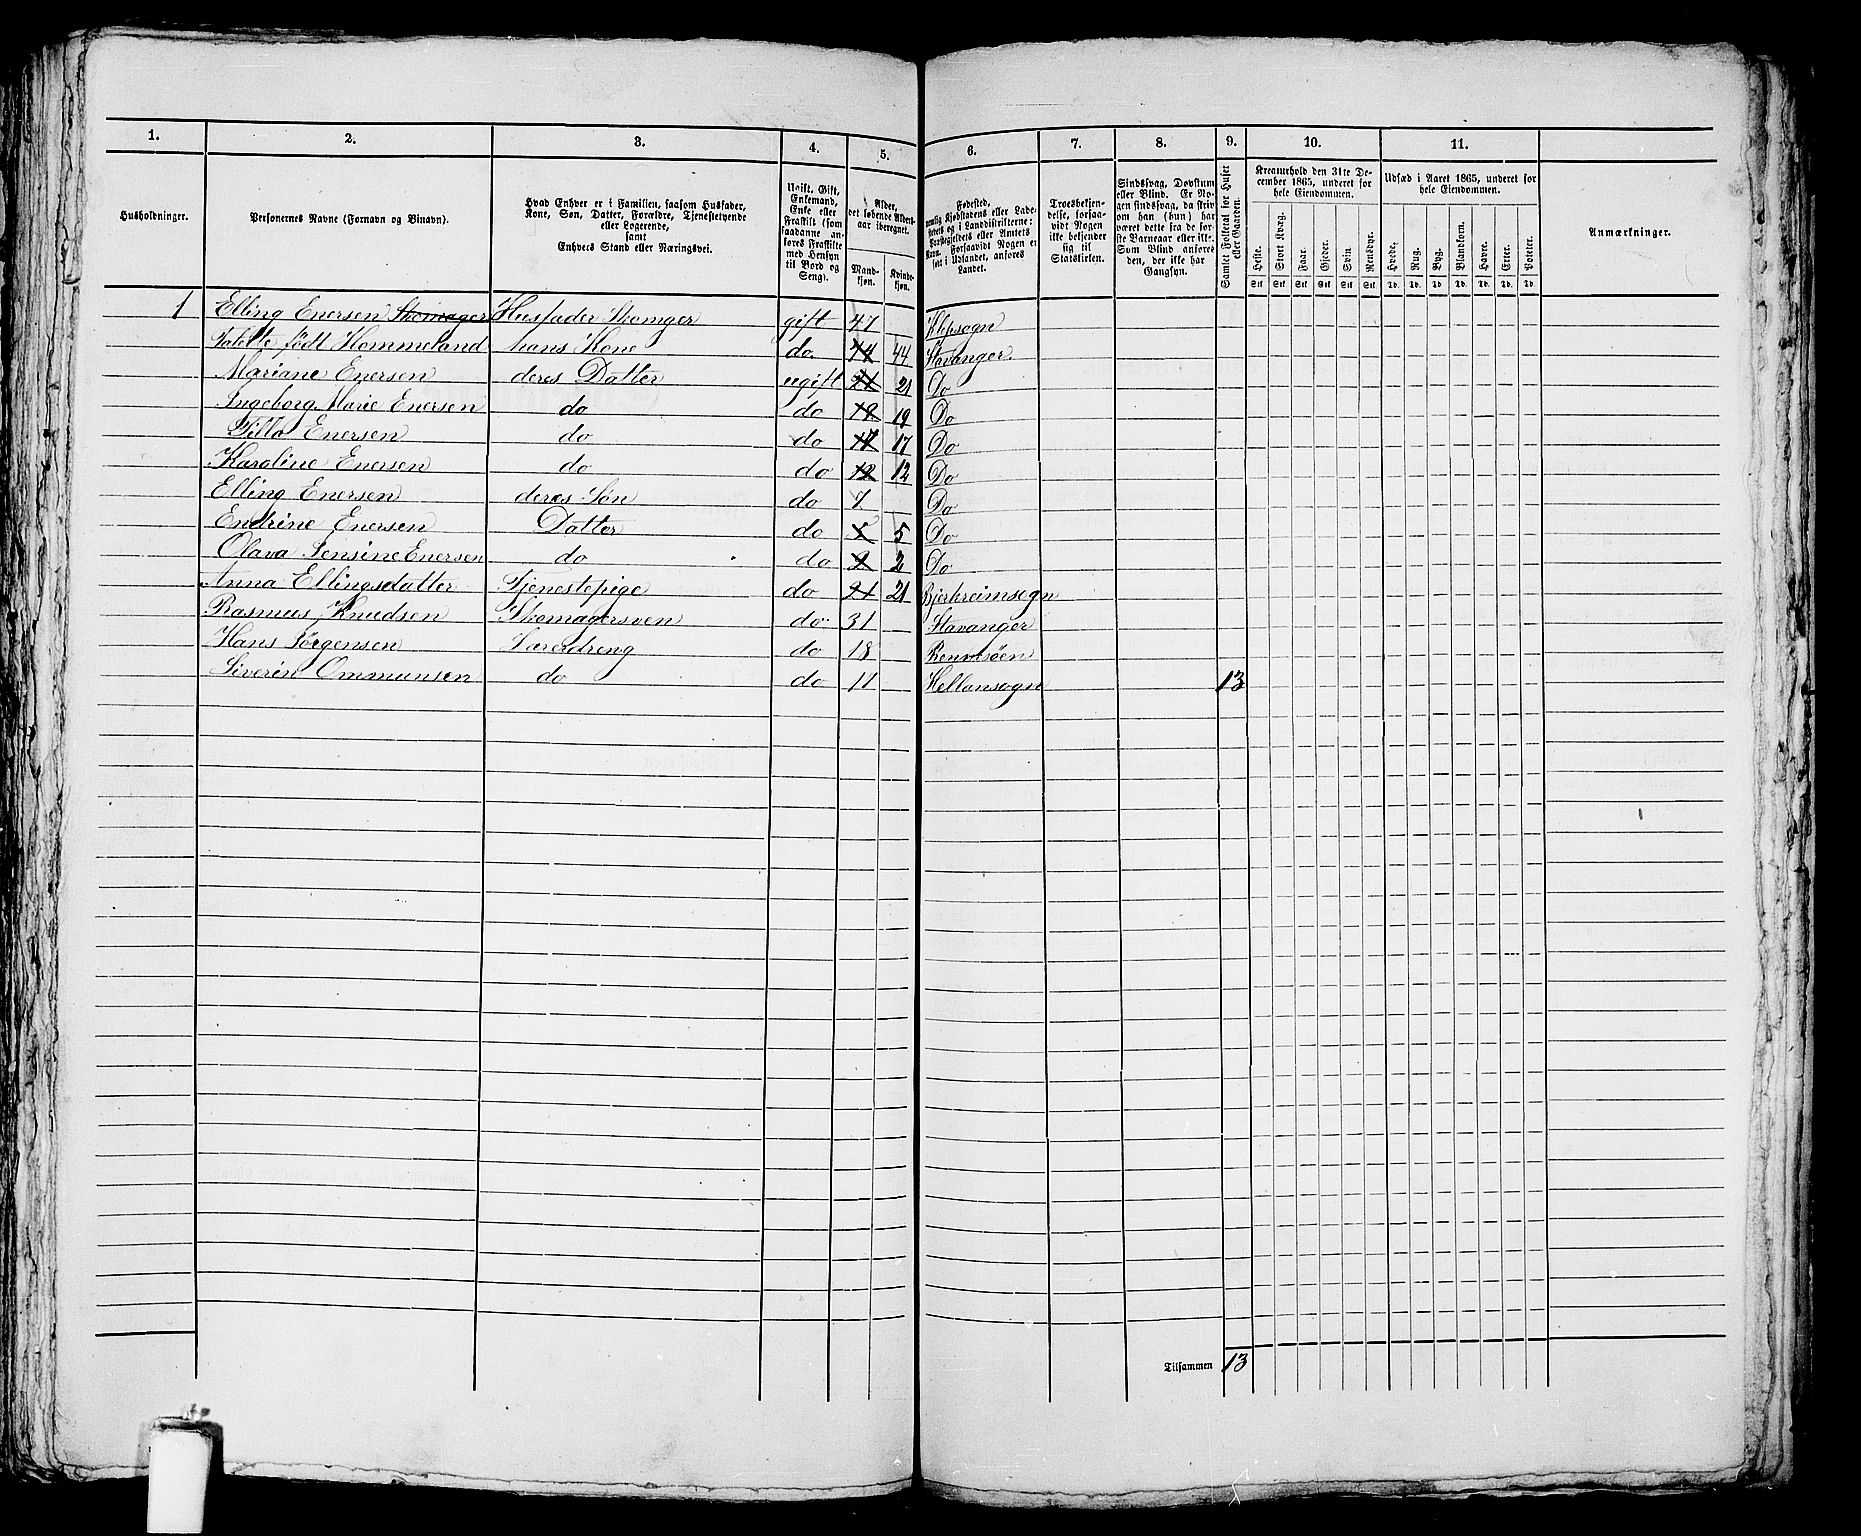 1. 2. 3. 4. 5. 6. 7. 8. 9. 10. 11.
Husholdninger.
Personernes Navne (Fornavn og Binavn).
Hvad Enhver er i Familien, saasom Husfader,
Kone, Søn, Datter, Forældre, Tjenestetyende
eller Logerende,
samt
Enhvers Stand eller Næringsvei.
Ugift, Gift,
Enkemand,
Enke eller
Fraskilt (som
saadanne an-
føres Fraskilte
med Hensyn
til Bord og
Seng).
Alder,
det løbende Alders-
aar iberegnet.
Mand-
kjøn.
Kvinde-
kjøn.
Fødested,
nemlig Kjøbstadens eller Lade-
stedets og i Landdistrikterne:
Præstegjeldets eller Amtets
Navn. Forsaavidt Nogen er
født i Udlandet, anføres
Landet.
Troesbekjen-
delse, forsaa-
vidt Nogen
ikke bekjender
sig til
Statskirken.
Sindssvag, Døvstum
eller Blind. Er No-
gen sindssvag, da skriv
om han (hun) har
været dette fra de før-
ste Barneaar eller ikke.
Som Blind anføres
den, der ikke har
Gangsyn.
Samlet Folketal for Huset
eller Gaarden.
Kreaturhold den 31te De-
cember 1865, underet for
hele Eiendommen.
Heste. Stort Kvæg. Faar. Gjeder. Svin. Rensdyr.
Stk Stk Stk Stk Stk Stk
Udsæd i Aaret 1865, underet for
hele Eiendommen.
Hvede. Rug. Byg. Blandkorn. Havre. Erter. Poteter.
Td. Td. Td. Td. Td. Td. Td.
Anmærkninger.
1 Elling Enersen Skomager Husfader Skomger gift 47 Klepsogn
født Hommeland hans Kone do 44 44 Stavanger.
Mariane Enersen deres Datter ugift 21 21 Do
Ingeborg Marie Enersen do do 19 19 Do
Enersen do do 17 17 Do
Karoline Enersen do do 12 12 Do
Elling Enersen deres Søn do 7 Do
Endrine Enersen Datter do 5 5 Do
Olava Jensine Enersen do do 2 2 Do
Anna Ellingsdatter Tjenestepige do 21 21 Bjerkreimsogn
Rasmus Knudsen Skomagersven do 31 Stavanger
Hans Jørgensen Læredreng do 18 Rennesøen
Siverin Ommunsen do do 11 Hellansogn 13
Tilsammen 13